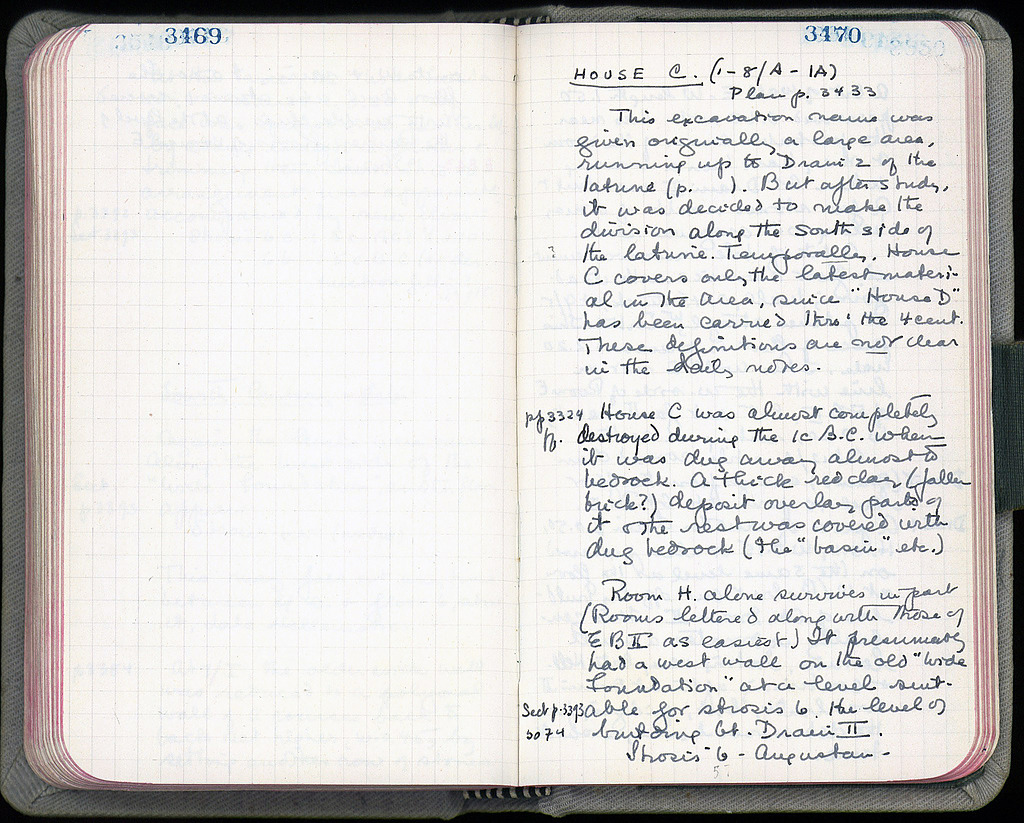 3469
3470
HOUSE C. (1-8/A-1A)
Plan p. 3433
This excavation name was
given originally a large area,
running up to Drain 2 of the
latrine (p. ). But after study,
it was decided to make the
division along the south side of
? the latrine. Temporally, House
C covers only the latest materi-
al in the area, since "House D"
has been carried thro' the 4 cent.
These definitions are not clear
in the daily notes.
pp 3324 House C was almost completely
ff. destroyed during the 1c B.C. when
it was dug away almost to
bedrock. A thick red clay (fallen
brick?) deposit overlay parts of
it & the rest was covered with
dug bedrock (the "basin" etc.)
Room H. alone survives in part
(Rooms lettered along with those of
EB II as easiest) It presumably
had a west wall on the old "Wide
Foundation" at a level suit-
Sect p. 3393 able for strosis 6, the level of
building bt. Drain II.
Strosis 6 - Augustan -